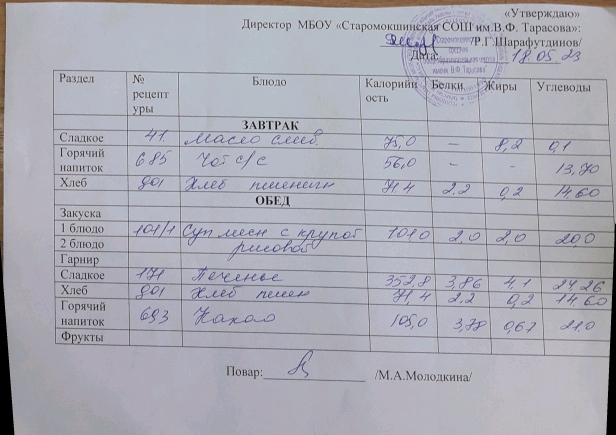 «Утверждаю»
Директор МБОУ «Старомокшинская СОШ им.В.Ф. Тарасова»:
/Р.Г.Шарафутдинов/
Дата: 18.05.23
Раздел № рецептуры Блюдо Калорийность Белки Жиры Углеводы
ЗАВТРАК
Сладкое 41. Масло слив. 75,0 – 8,2 0,1
Горячий напиток 685 Чай с/с 56,0 – – 13,70
Хлеб 801 Хлеб пшеничн 71.4 2,2 0,2 14,60
ОБЕД
Закуска
1 блюдо 101/1 Суп мясн с крупой рисовой 101.0 2,0 2,0 20,0
2 блюдо
Гарнир
Сладкое 171 Печенье 352,8 3,86 4,1 24.26
Хлеб 801 Хлеб пшен 71,4 2.2 0,2 14,60
Горячий напиток 693 Какао 105,0 3,78 0,67 21.0
Фрукты
Повар: /М.А.Молодкина/